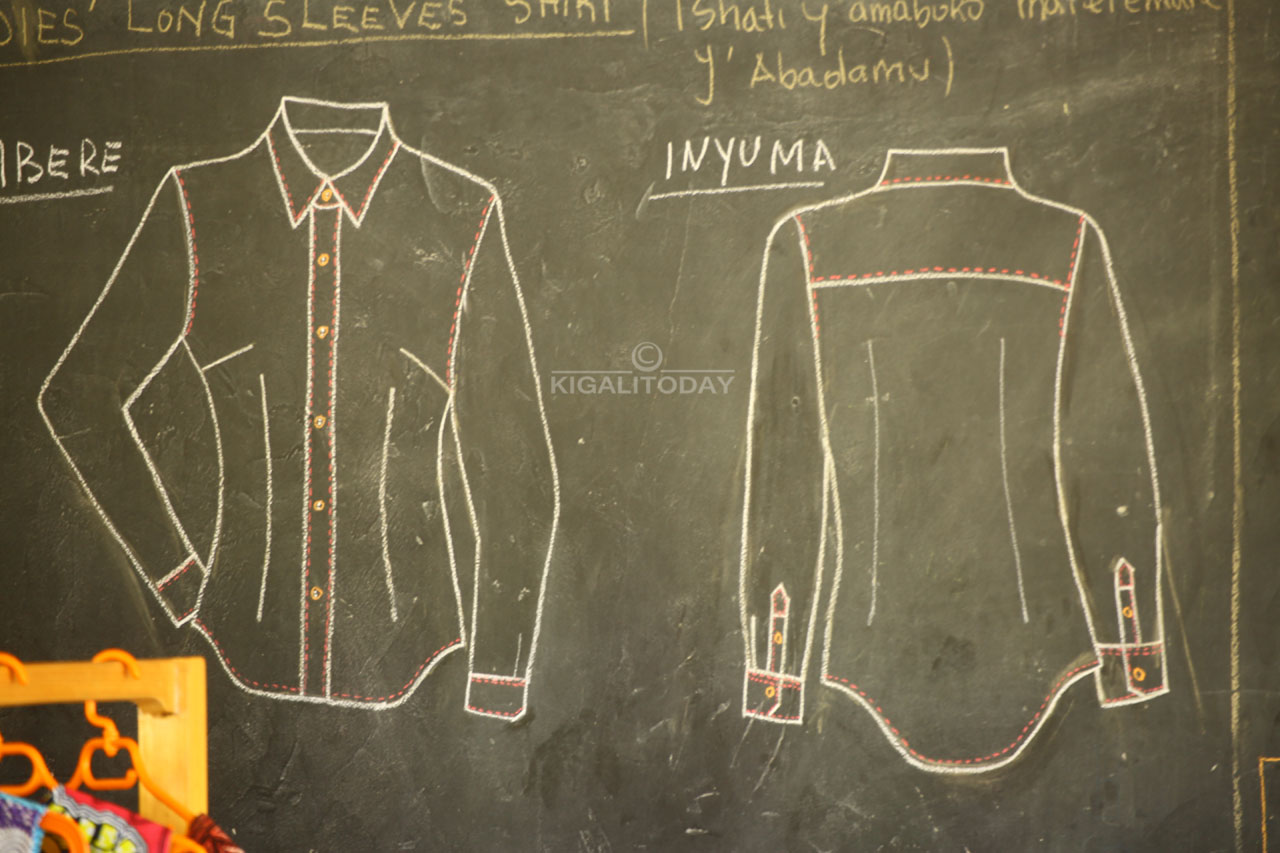 DIES' LONG SLEEVES SHIRT (Shati y' amaboko maremare
y' Abadamu)
IBERE
INYUMA
©
KIGALITODAY